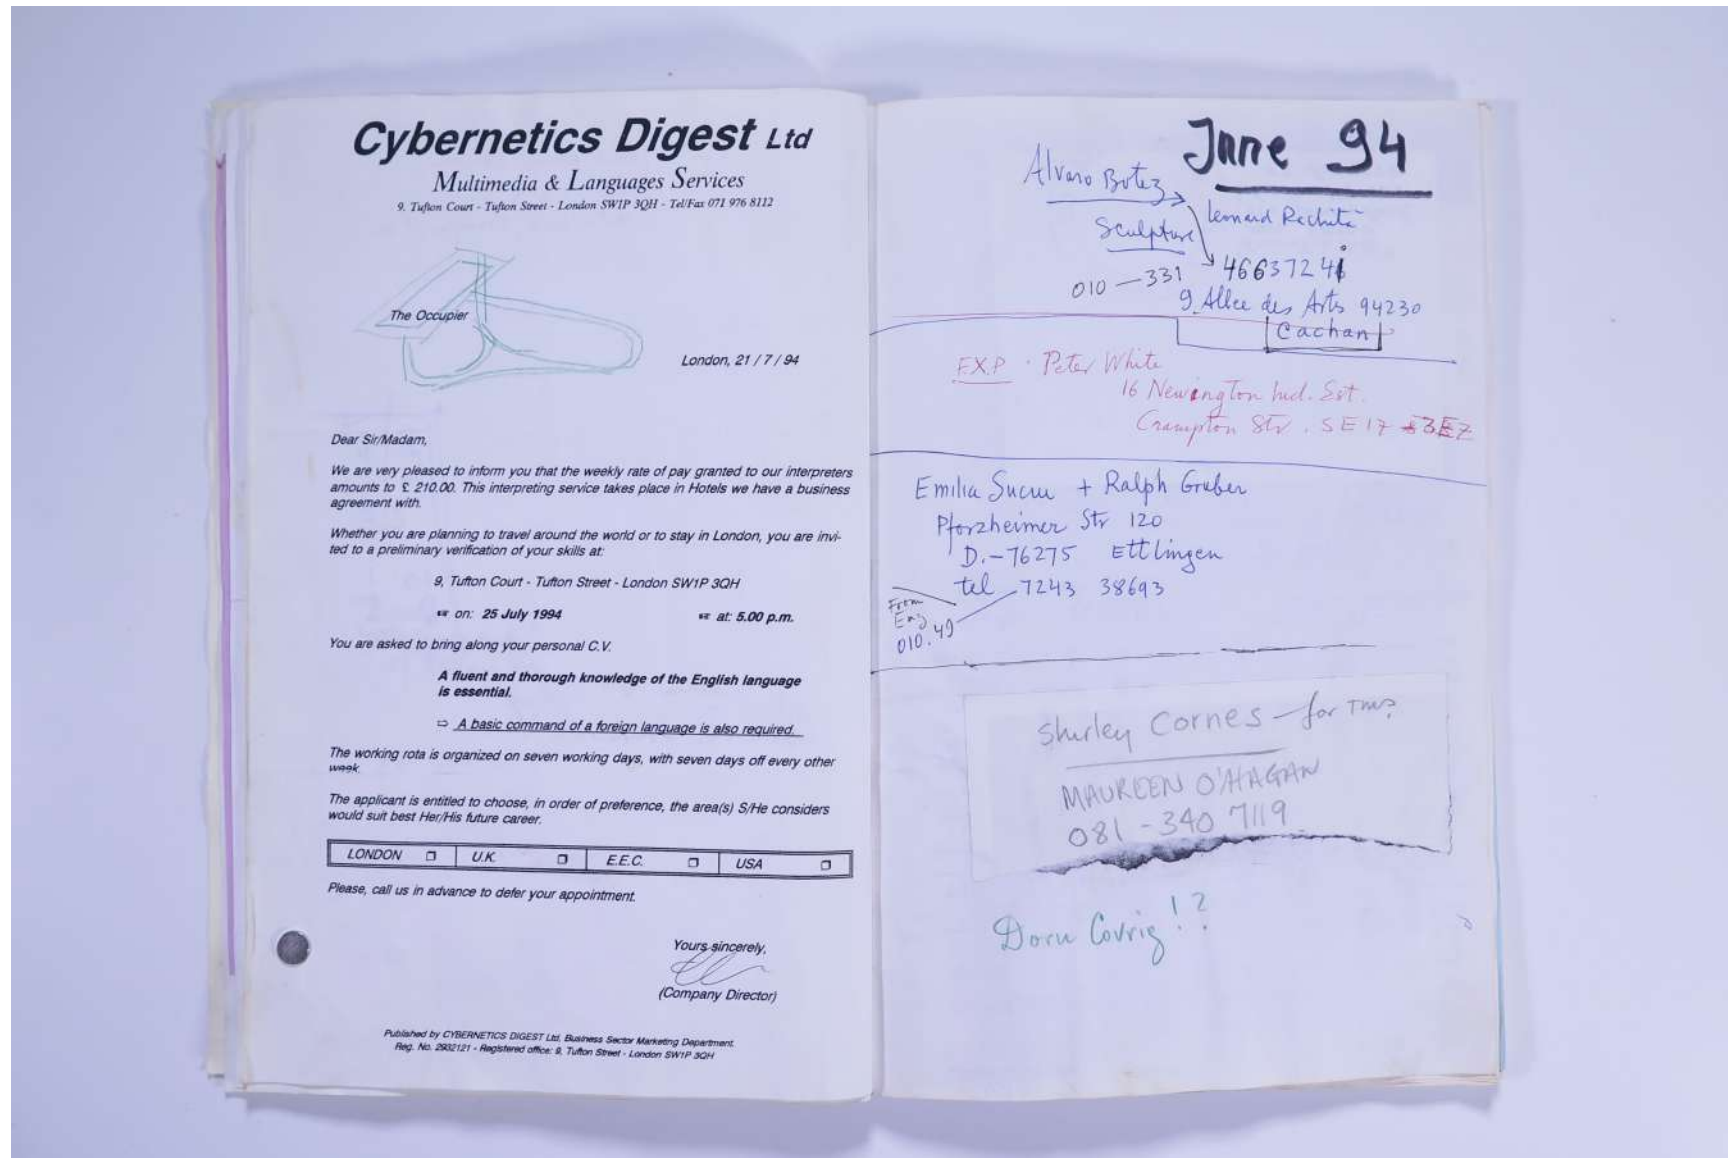 Cybernetics Digest Ltd
Multimedia & Languages Services
9. Tufton Court - Tufton Street - London SW1P 3QH - Tel/Fax 071 976 8112
The Occupier
London, 21 / 7 / 94
Dear Sir/Madam,
We are very pleased to inform you that the weekly rate of pay granted to our interpreters
amounts to £ 210.00. This interpreting service takes place in Hotels we have a business
agreement with.
Whether you are planning to travel around the world or to stay in London, you are invi-
ted to a preliminary verification of your skills at:
9, Tufton Court - Tufton Street - London SW1P 3QH
☞ on: 25 July 1994 ☞ at: 5.00 p.m.
You are asked to bring along your personal C.V.
A fluent and thorough knowledge of the English language
is essential.
⇨ A basic command of a foreign language is also required.
The working rota is organized on seven working days, with seven days off every other
week.
The applicant is entitled to choose, in order of preference, the area(s) S/He considers
would suit best Her/His future career.
LONDON ❒ U.K. ❒ E.E.C. ❒ USA ❒
Please, call us in advance to defer your appointment.
Yours sincerely,
(Company Director)
Published by CYBERNETICS DIGEST Ltd, Business Sector Marketing Department.
Reg. No. 2932121 - Registered office: 9, Tufton Street - London SW1P 3QH
June 94
Alvaro Botez
Leonard Rachita
Sculpture
010 - 331 4663724
9 Allee des Arts 94230
Cachan
EXP. Peter White
16 Newington Ind. Est.
Crampton Str. SE17
Emilia Sucuu + Ralph Gruber
Pforzheimer Str 120
D.-76275 Ettlingen
tel 7243 38693
From
Eng
010.49
Shirley Cornes - for
MAUREEN O'HAGAN
081 - 340 7119
Doru Covrig!?